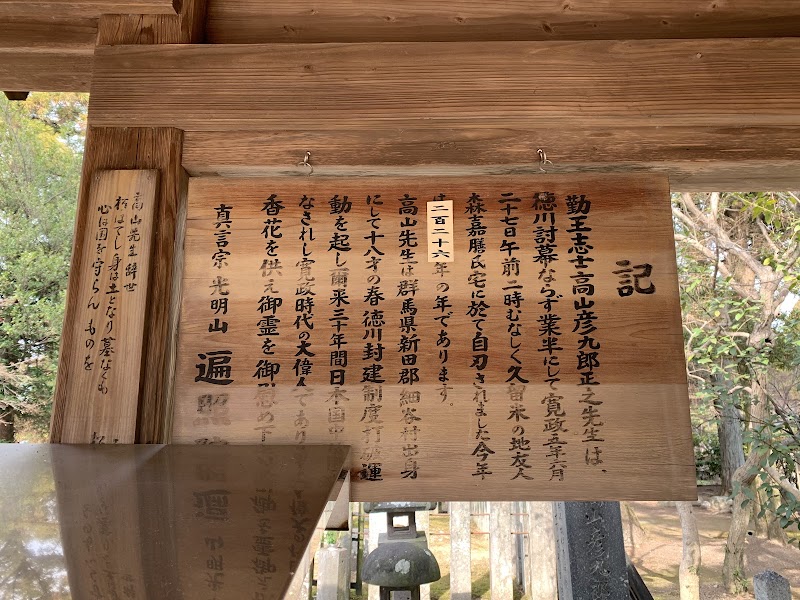 記
勤王志士高山彦九郎正之先生は、
徳川討幕ならず業半にして寛政五年六月
二十七日午前二時むなしく久留米の地友人
森嘉膳氏宅に於て自刃されました今年
は二百二十六年の年であります。
高山先生は群馬県新田郡細谷村出身
にして十八才の春徳川封建制度打破運
動を起し爾来三十年間日本国
なされし寛政時代の大偉人であり
香花を供え御霊を御慰め下
真言宗光明山遍照
高山先生辞世
松はてし身は土となり墓なくも
心は国を守らんものを